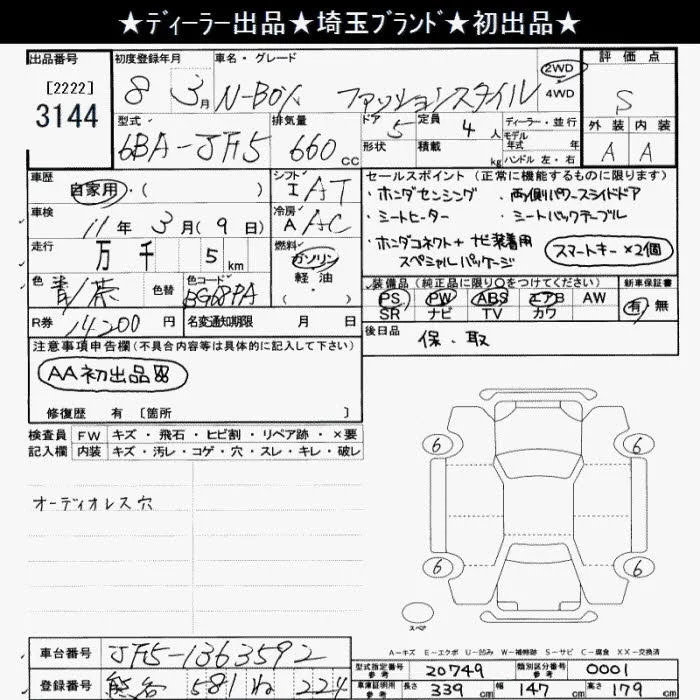 ★ディーラー出品★埼玉ブランド★初出品★
出品番号
[2222]
3144
初度登録年月
8 3月
車名・グレード
N-BOX ファッションスタイル
2WD
4WD
評価点
S
外装 内装
A A
型式
6BA-JF5
排気量
660 cc
ドア 5
形状
定員 4 人
積載 kg
ディーラー・並行
モデル年式 年式
ハンドル 左・右
車歴
自家用・( )
シフト
I AT
車検
11年 3月(9日)
冷房
A AC
走行
万 千 5 km
燃料
ガソリン
軽・油
( )
色
青/茶
色替
色コード
BG68PA
R券 14200円
名変通知期限 月 日
セールスポイント (正常に機能するものに限ります)
・ホンダセンシング ・両側パワースライドドア
・シートヒーター ・シートバックテーブル
・ホンダコネクト+ナビ装着用
スペシャルパッケージ
スマートキー×2個
装備品(純正品に限り○をつけてください)
PS PW ABS エアB AW
SR ナビ TV カワ
新車保証書
有 無
後日品
保・取
注意事項申告欄(不具合内容等は具体的に記入して下さい)
AA初出品
修復歴 有 [箇所 ]
検査員 FW キズ・飛石・ヒビ割・リペア跡・×要
記入欄 内装 キズ・汚レ・コゲ・穴・スレ・キレ・破レ
オーディオレス穴
6 6
6 6
スペア
A-キズ E-エクボ U-凹み W-補修跡 S-サビ C-腐食 XX-交換済
車台番号 JF5-1363592
登録番号 熊谷 581 ね 224
型式指定番号 参考 20749
類別区分番号 参考 0001
車庫証明用 参考 長さ 339 cm 幅 147 cm 高さ 179 cm